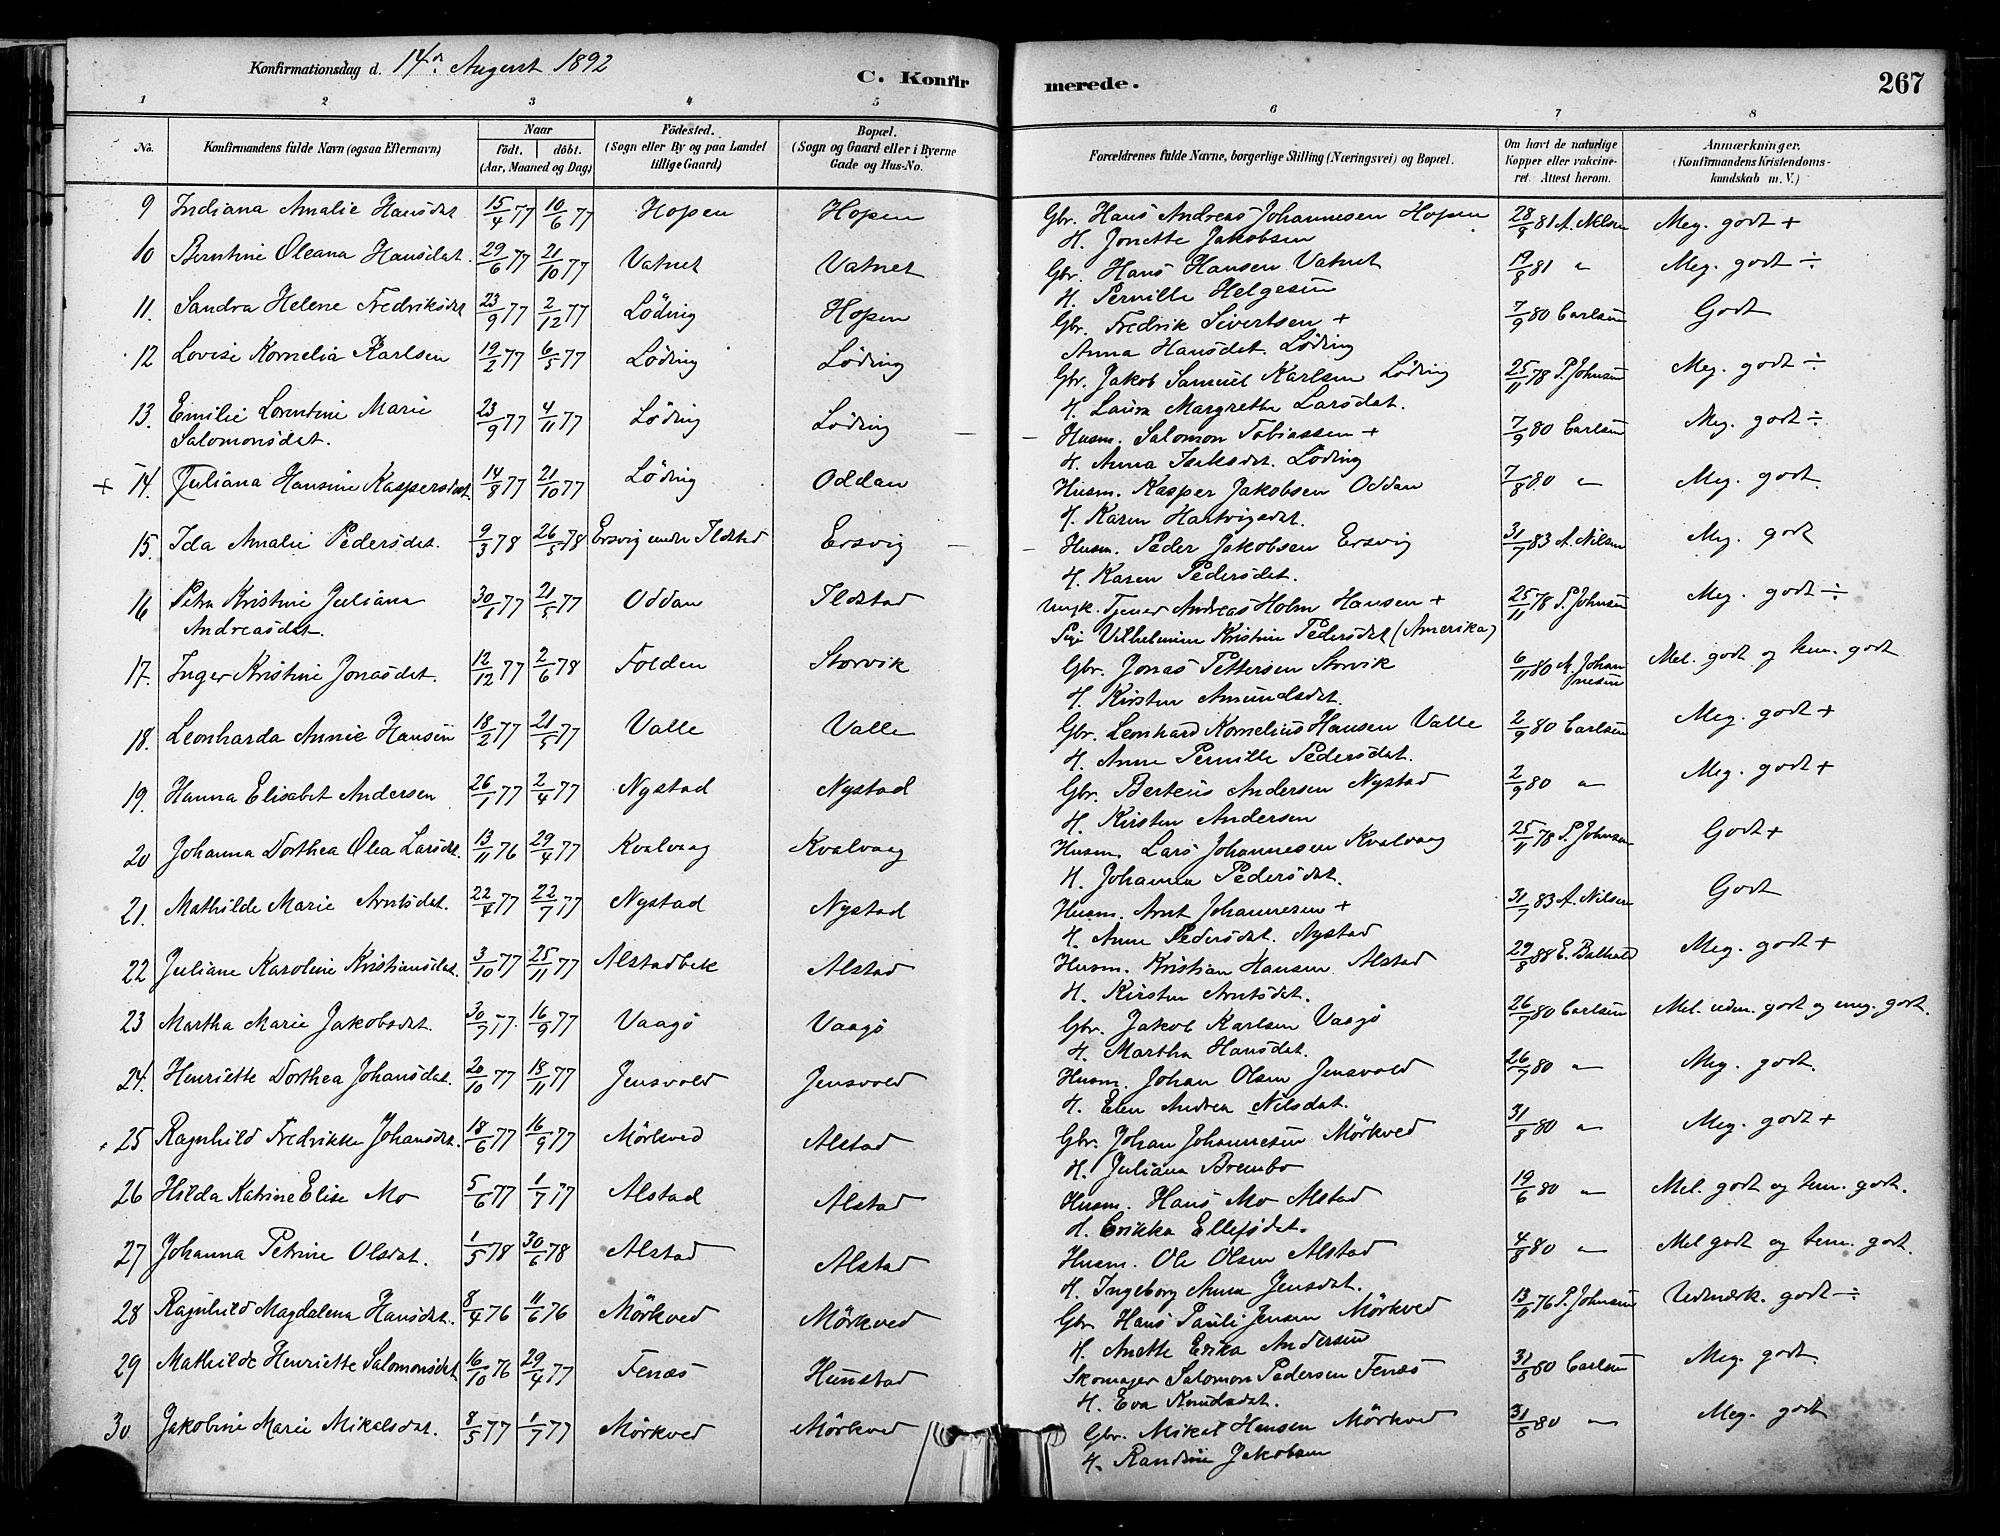 Konfirmationsdag d. 14de August 1892
C. Konfirmerede.
267
1 2 3 4 5 6 7 8
No.
Konfirmandens fulde Navn (ogsaa Efternavn)
Naar
födt. döbt.
(Aar, Maaned og Dag)
Födested.
(Sogn eller By og paa Landet tillige Gaard)
Bopæl.
(Sogn og Gaard eller i Byerne Gade og Hus-No.
Forældrenes fulde Navne, borgerlige Stilling (Næringsvei) og Bopæl.
Om havt de naturlige Kopper eller vakcineret. Attest herom.
Anmærkninger.
(Konfirmandens Kristendomskundskab m. V.)
9 Indiana Amalie Hansdat 15/4 77 10/6 77 Hopen Hopen Gbr. Hans Andreas Johannesen Hopen 28/8 81 A. Nilsen Meg. godt +
H. Jonette Jakobsen
10 Berntine Oleana Hansdat. 29/6 77 21/10 77 Vatnet Vatnet Gbr. Hans Hansen Vatnet 19/8 81 " Meg. godt ÷
H. Pernille Helgesen
11. Sandra Helene Fredriksdat 23/9 77 2/12 77 Löding Hopen Gbr. Fredrik Sivertsen + 7/9 80 Carlsen Godt
Anna Hansdat. Löding
12 Lovise Kornelia Karlsen 19/2 77 6/5 77 Löding Löding Gbr. Jakob Samuel Karlsen Löding 25/11 78 P. Johnsen Meg. godt ÷
H. Laura Margrethe Larsdat.
13. Emilie Lorentine Marie 23/9 77 4/11 77 Löding Löding — — Husm. Salomon Tobiassen + 7/9 80 Carlsen Meg. godt ÷
Salomonsdat. H. Anna Isaksdat. Löding
+ 14. Juliana Hansine Kaspersdat. 14/8 77 21/10 77 Löding Oddan Husm. Kasper Jakobsen Oddan 7/8 80 " Meg. godt.
H. Karen Hartvigsdat.
15. Ida Amalie Pedersdat. 9/3 78 26/5 78 Ersvig under Ildstad Ersvig — — Husm. Peder Jakobsen Ersvig 31/7 83 A. Nilsen Meg. godt
H. Karen Pedersdat.
16 Petra Kristine Juliana 30/1 77 21/5 77 Oddan Ildstad Ungk. Tjener Andreas Holm Hansen + 25/11 78 P. Johnsen Meg. godt ÷
Andreasdat. Pige Vilhelmine Kristine Pedersdat (Amerika)
17. Inger Kristine Jonasdat. 12/12 77 2/6 78 Folden Storvik Gbr. Jonas Pettersen Storvik 6/11 80 M. Johannesen Mel. godt og tem. godt
H. Kirsten Amundsdat.
18. Leonharda Annie Hansen 18/2 77 21/5 77 Valle Valle Gbr. Leonhard Kornelius Hansen Valle 2/9 80 Carlsen Meg. godt +
H. Anne Pernille Pedersdat.
19. Hanna Elisabet Andersen 26/1 77 2/4 77 Nystad Nystad Gbr. Berteus Andersen Nystad 2/9 80 " Meg. godt +
H. Kirsten Andersen
20 Johanna Dorthea Olea Larsdat. 13/11 76 29/4 77 Kvalvaag Kvalvaag Husm. Lars Johannesen Kvalvaag 25/11 78 P. Johnsen Godt +
H. Johanna Pedersdat.
21. Mathilde Marie Arntsdat. 22/4 77 22/7 77 Nystad Nystad Husm. Arnt Johannesen + 31/7 83 A. Nilsen Godt
H. Anne Pedersdat. Nystad
22 Juliane Karoline Kristiansdat. 3/10 77 25/11 77 Alstadbek Alstad Husm. Kristian Hansen Alstad 29/8 88 E. Meg. godt +
H. Kirsten Arntsdat.
23 Martha Marie Jakobsdat. 30/7 77. 16/9 77 Vaagö Vaagö Gbr. Jakob Karlsen Vaagö 26/7 80 Carlsen Mel. udm. godt og meg. godt.
H. Martha Hansdat.
24. Henriette Dorthea Johansdat. 20/10 77 18/11 77 Jensvold Jensvold Husm. Johan Olsen Jensvold 26/7 80 " Meg. godt.
H. Elen Andrea Nilsdat.
25 Ragnhild Fredrikke Johansdat. 18/6 77 16/9 77 Mörkved Alstad Gbr. Johan Johannesen Mörkved 31/8 80 " Meg. godt +
H. Juliana Brembo
26 Hilda Katrine Elise Mo 5/6 77 1/7 77 Alstad Alstad Husm. Hans Mo Alstad 19/6 80 " Mel. godt og tem. godt.
H. Erikka Ellefsdat.
27 Johanna Petrine Olsdat. 1/5 78 30/6 78 Alstad Alstad Husm. Ole Olsen Alstad 4/8 80 " Mel godt og tem. godt.
H. Ingeborg Anna Jensdat.
28 Ragnhild Magdalena Hansdat. 8/4 76 11/6 76 Mörkved Mörkved Gbr. Hans Pauli Jensen Mörkved 13/11 76 P. Johnsen Udmærk. godt ÷
H. Anette Erika Andersen
29 Mathilde Henriette Salomonsdat 16/10 76 29/4 77 Fenæs Hunstad Skomager Salomon Pedersen Fenæs 31/8 80 Carlsen Meg. godt.
H. Eva Knudsdat.
30 Jakobine Marie Mikalsdat. 8/5 77 1/7 77 Mörkved Mörkved Gbr. Mikal Hansen Mörkved 31/8 80 " Meg. godt
H. Randine Jakobsen